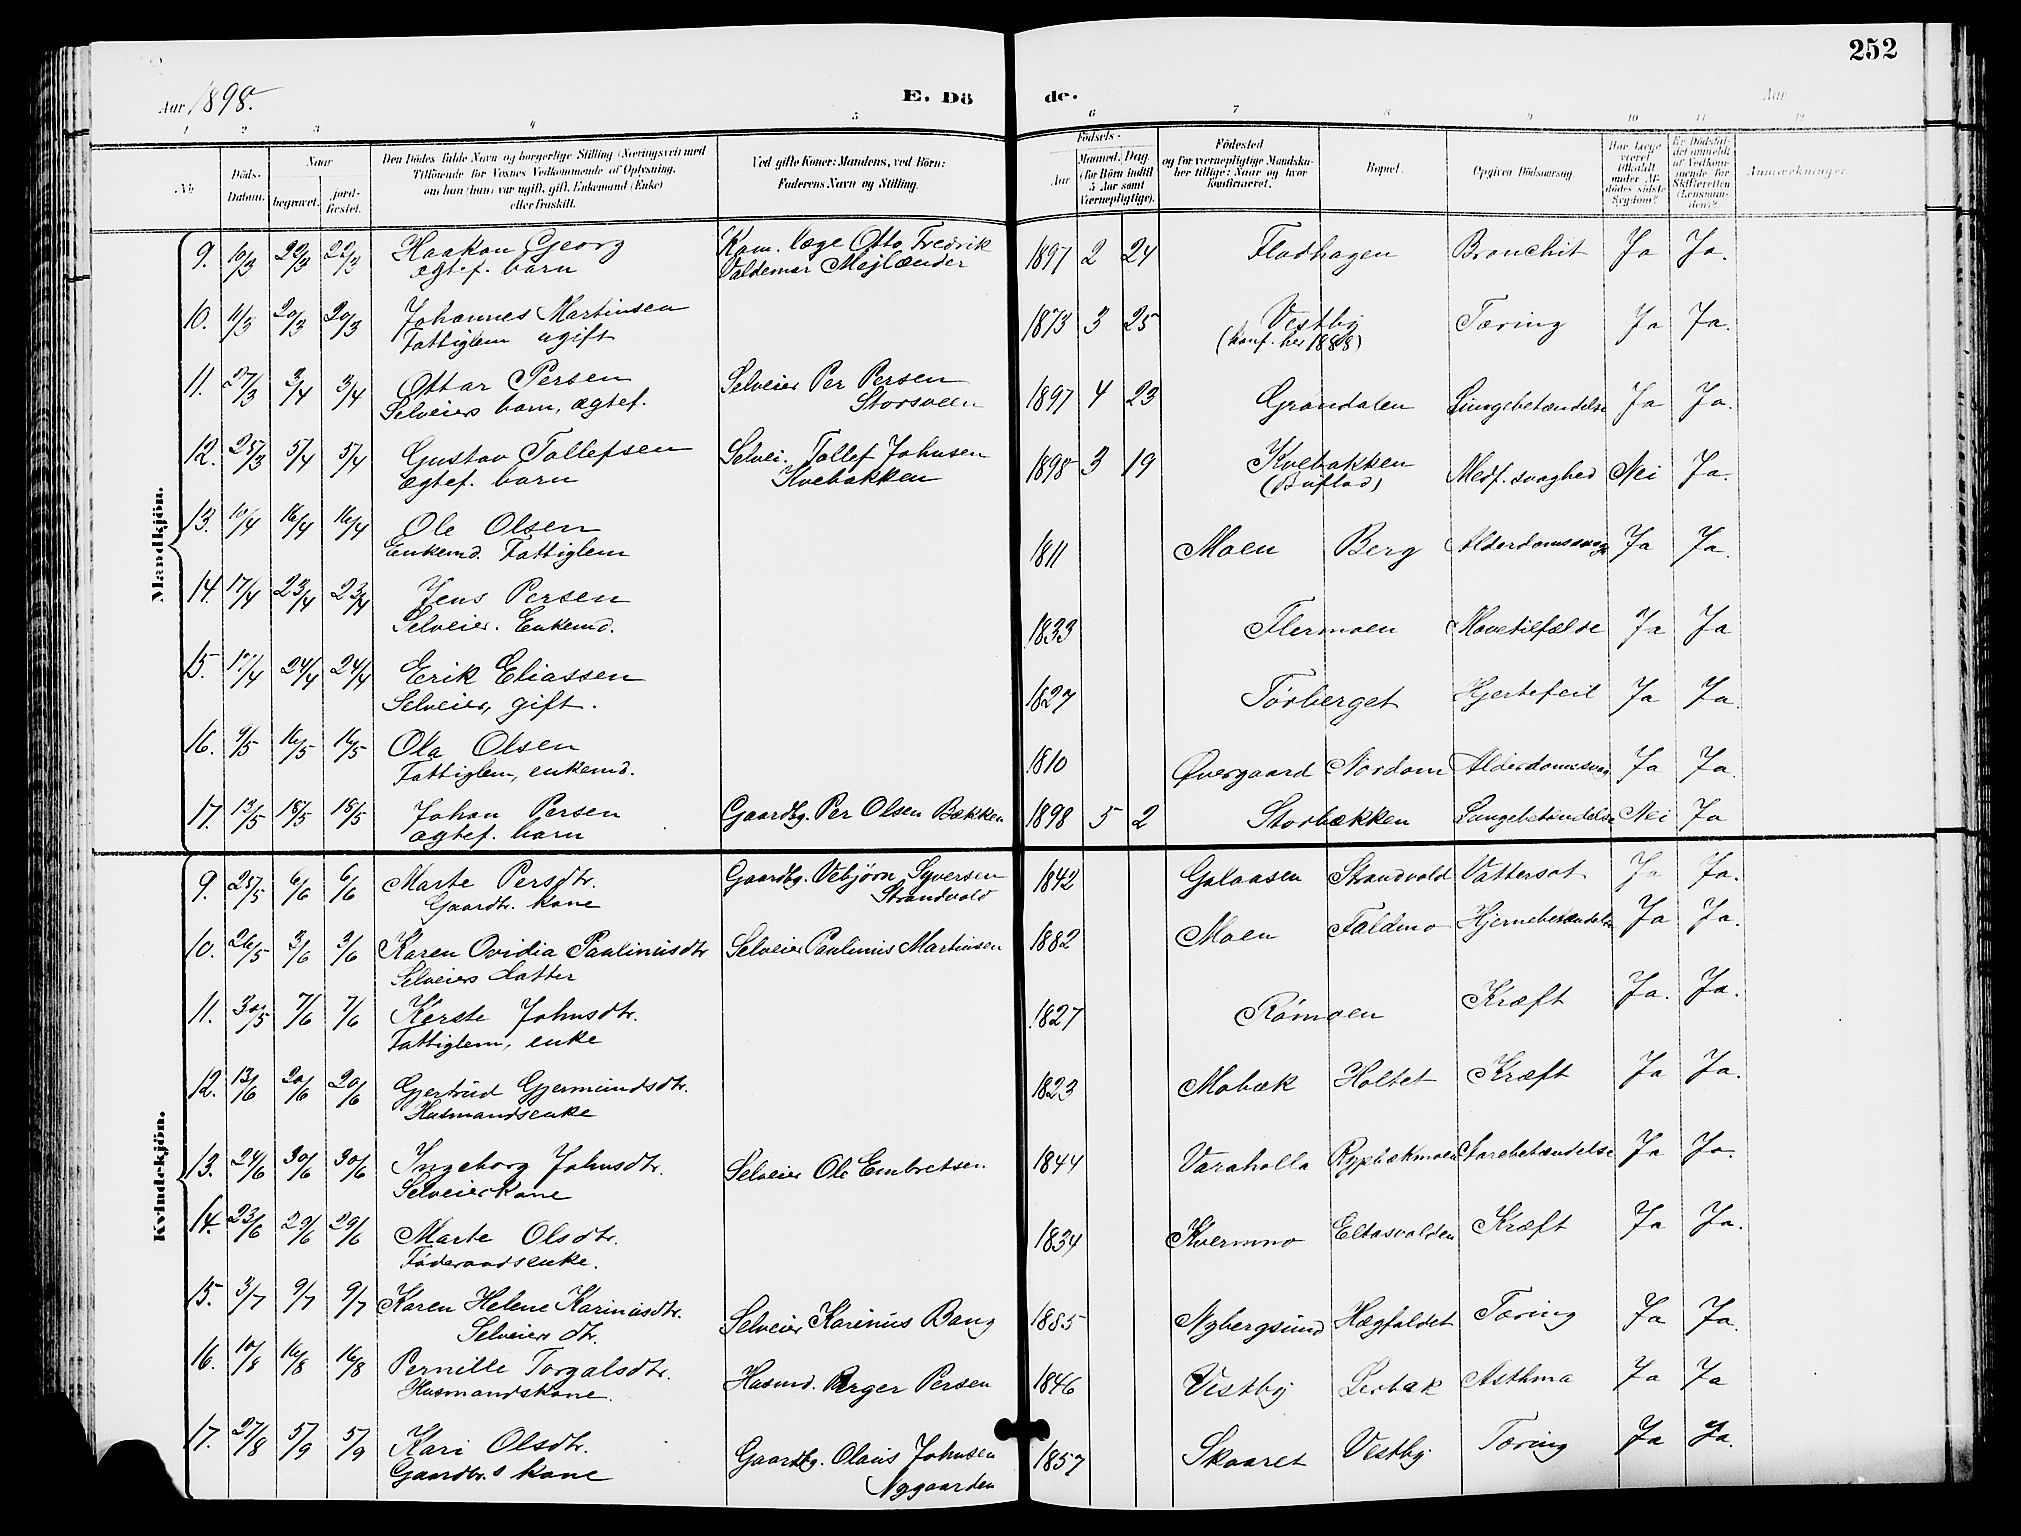 252
Aar 1898.
E. Dö de.
Aar
1 2 3 4 5 6 7 8 9 10 11 12
No Döds-Datum. Naar begravet. jord-fæstet. Den Dödes fulde Navn og borgerlige Stilling (Næringsvei) med Tilföiende for Voxnes Vedkommende af Oplysning, om han (hun) var ugift, gift, Enkemand (Enke) eller fraskilt. Ved gifte Koner: Mandens, ved Börn: Faderens Navn og Stilling. Födsels- Aar Maaned. Dag. (for Börn indtil 5 Aar samt Værnepligtige). Födested og for værnepligtige Mandskaber tillige: Naar og hvor konfirmeret. Bopæl. Opgiven Dödsaarsag. Har Læge været tilkaldt under Afdödes sidste Sygdom? Er Dödsfaldet anmeldt af Vedkommende for Skifteretten (Lensmanden)? Anmærkninger.
Mandkjön.
9. 10/3 22/3 22/3 Haakon Georg Kom. læge Otto Fredrik 1897 2 24 Flodhagen Bronchit Ja Ja.
ægtef. barn Valdemar Mejlænder
10. 11/3 20/3 20/3 Johannes Martinsen 1873 3 25 Vestby Tæring Ja Ja.
Fattiglem ugift (konf. her 1888)
11. 27/3 3/4 3/4 Ottar Persen Selveier Per Persen 1897 4 23 Grandalen Lungebetændelse Ja Ja.
Selveiers barn, ægtef. Storsveen
12. 25/3 5/4 5/4 Gustav Tollefsen Selvei. Tollef Johnsen 1898 3 19 Kvebakken Medf. svaghed Nei Ja.
Ægtef. barn Kvebakken
13. 10/4 16/4 16/4 Ole Olsen 1811 Moen Berg Alderdomssvagh Ja Ja.
Enkemd. Fattiglem
14. 17/4 23/4 23/4 Jens Persen 1833 Flermoen Mavetilfælde Ja Ja
Selveier. Enkemd.
15. 17/4 24/4 24/4 Erik Eliassen 1827 Tørberget Hjertefeil Ja Ja.
Selveier, gift.
16. 9/5 16/5 16/5 Ola Olsen 1810 Øvergaard Nordom Alderdomssvag Ja Ja.
Fattiglem, enkemd.
17. 13/5 18/5 18/5 Johan Persen Gaardbg. Per Olsen Bækken 1898 5 2 Storbækken Lungebetændelse Nei Ja
ægtef. barn
Kvindekjön.
9. 25/5 6/6 6/6 Marte Persdtr. Gaardbg. Vebjørn Syversen 1842 Galaasen Strandvold Vattersot Ja Ja.
Gaardbr. kone Strandvold
10. 26/5 3/6 3/6 Karen Ovidia Paulinusdtr Selveier Paulinus Martinsen 1882 Moen Faldmo Hjernebetændelse Ja Ja.
Selveiers datter
11. 30/5 7/6 7/6 Kerste Johnsdtr. 1827 Rømoen Kræft Ja. Ja.
Fattiglem, enke
12. 13/6 20/6 20/6 Gjertrud Gjermundsdtr. 1823 Mobæk Holtet Kræft Ja Ja.
Husmandsenke
13. 24/6 30/6 30/6 Ingeborg Johnsdtr. Selveier Ole Embretsen 1844 Varaholla Rypbækmoen Aarebetændelse Ja Ja.
Selveierkone
14. 23/6 29/6 29/6 Marte Olsdtr. 1834 Kvermmo Eltasvolden Kræft Ja Ja.
Føderaadsenke.
15. 3/7 9/7 9/7 Karen Helene Karinusdtr. Selveier Karinus Bang 1885 Nybergsund Hægfaldet Tæring Ja Ja.
Selveiers dtr.
16. 10/8 16/8 16/8 Pernille Torgalsdtr. Husmd. Birger Persen 1846 Vestby Lerbæk Asthma Ja Ja
Husmandskone.
17. 27/8 5/9 5/9 Kari Olsdtr. Gaardbg. Olaus Johnsen 1857 Skaaret Vestby Tæring Ja Ja.
Gaardbr.s kone Nygaarden